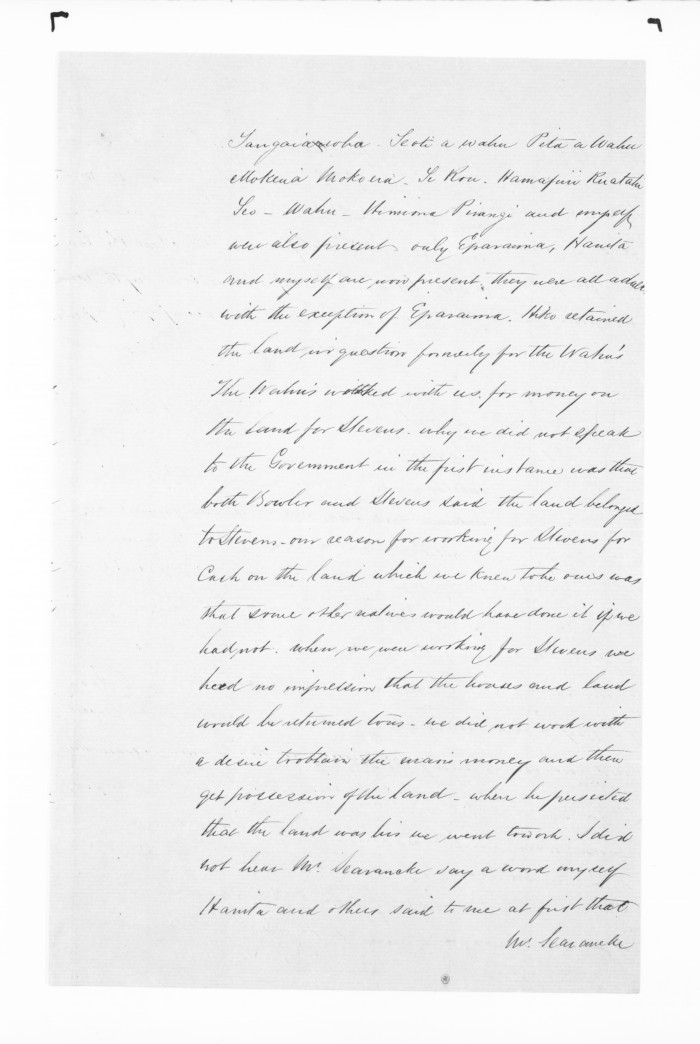 Teoti a Wahu Pita a Wahu
Mokena Mokoera - Te Kou - Hamapiri
Teo - Wahu - Himiona Pirangi and myself
were also present, only Eparaima, Hanita
and myself are now present, they were all adults
with the exeption of Eparaima. Hiko retained
the land in question formerly for the Wahu's
The Wahu's worked with us for money on
the land for Stevens. why we did not speak
to the Government in the first instance was that
both Bowler and Stevens said the land belonged
to Stevens - our reason for working for Stevens for
Cash on the land which we knew to be ours was
that some other natives would have done it if we
had not. when we were working for Stevens we
had no impression that the houses and land
would be returned to us - we did not work with
a desire to obtain the man's money and then
get possession of the land - when he persisted
that the land was his we went to work. I did
not hear Mr. Searancke say a word myself
Hanita and others said to me at first that
Mr. Searancke